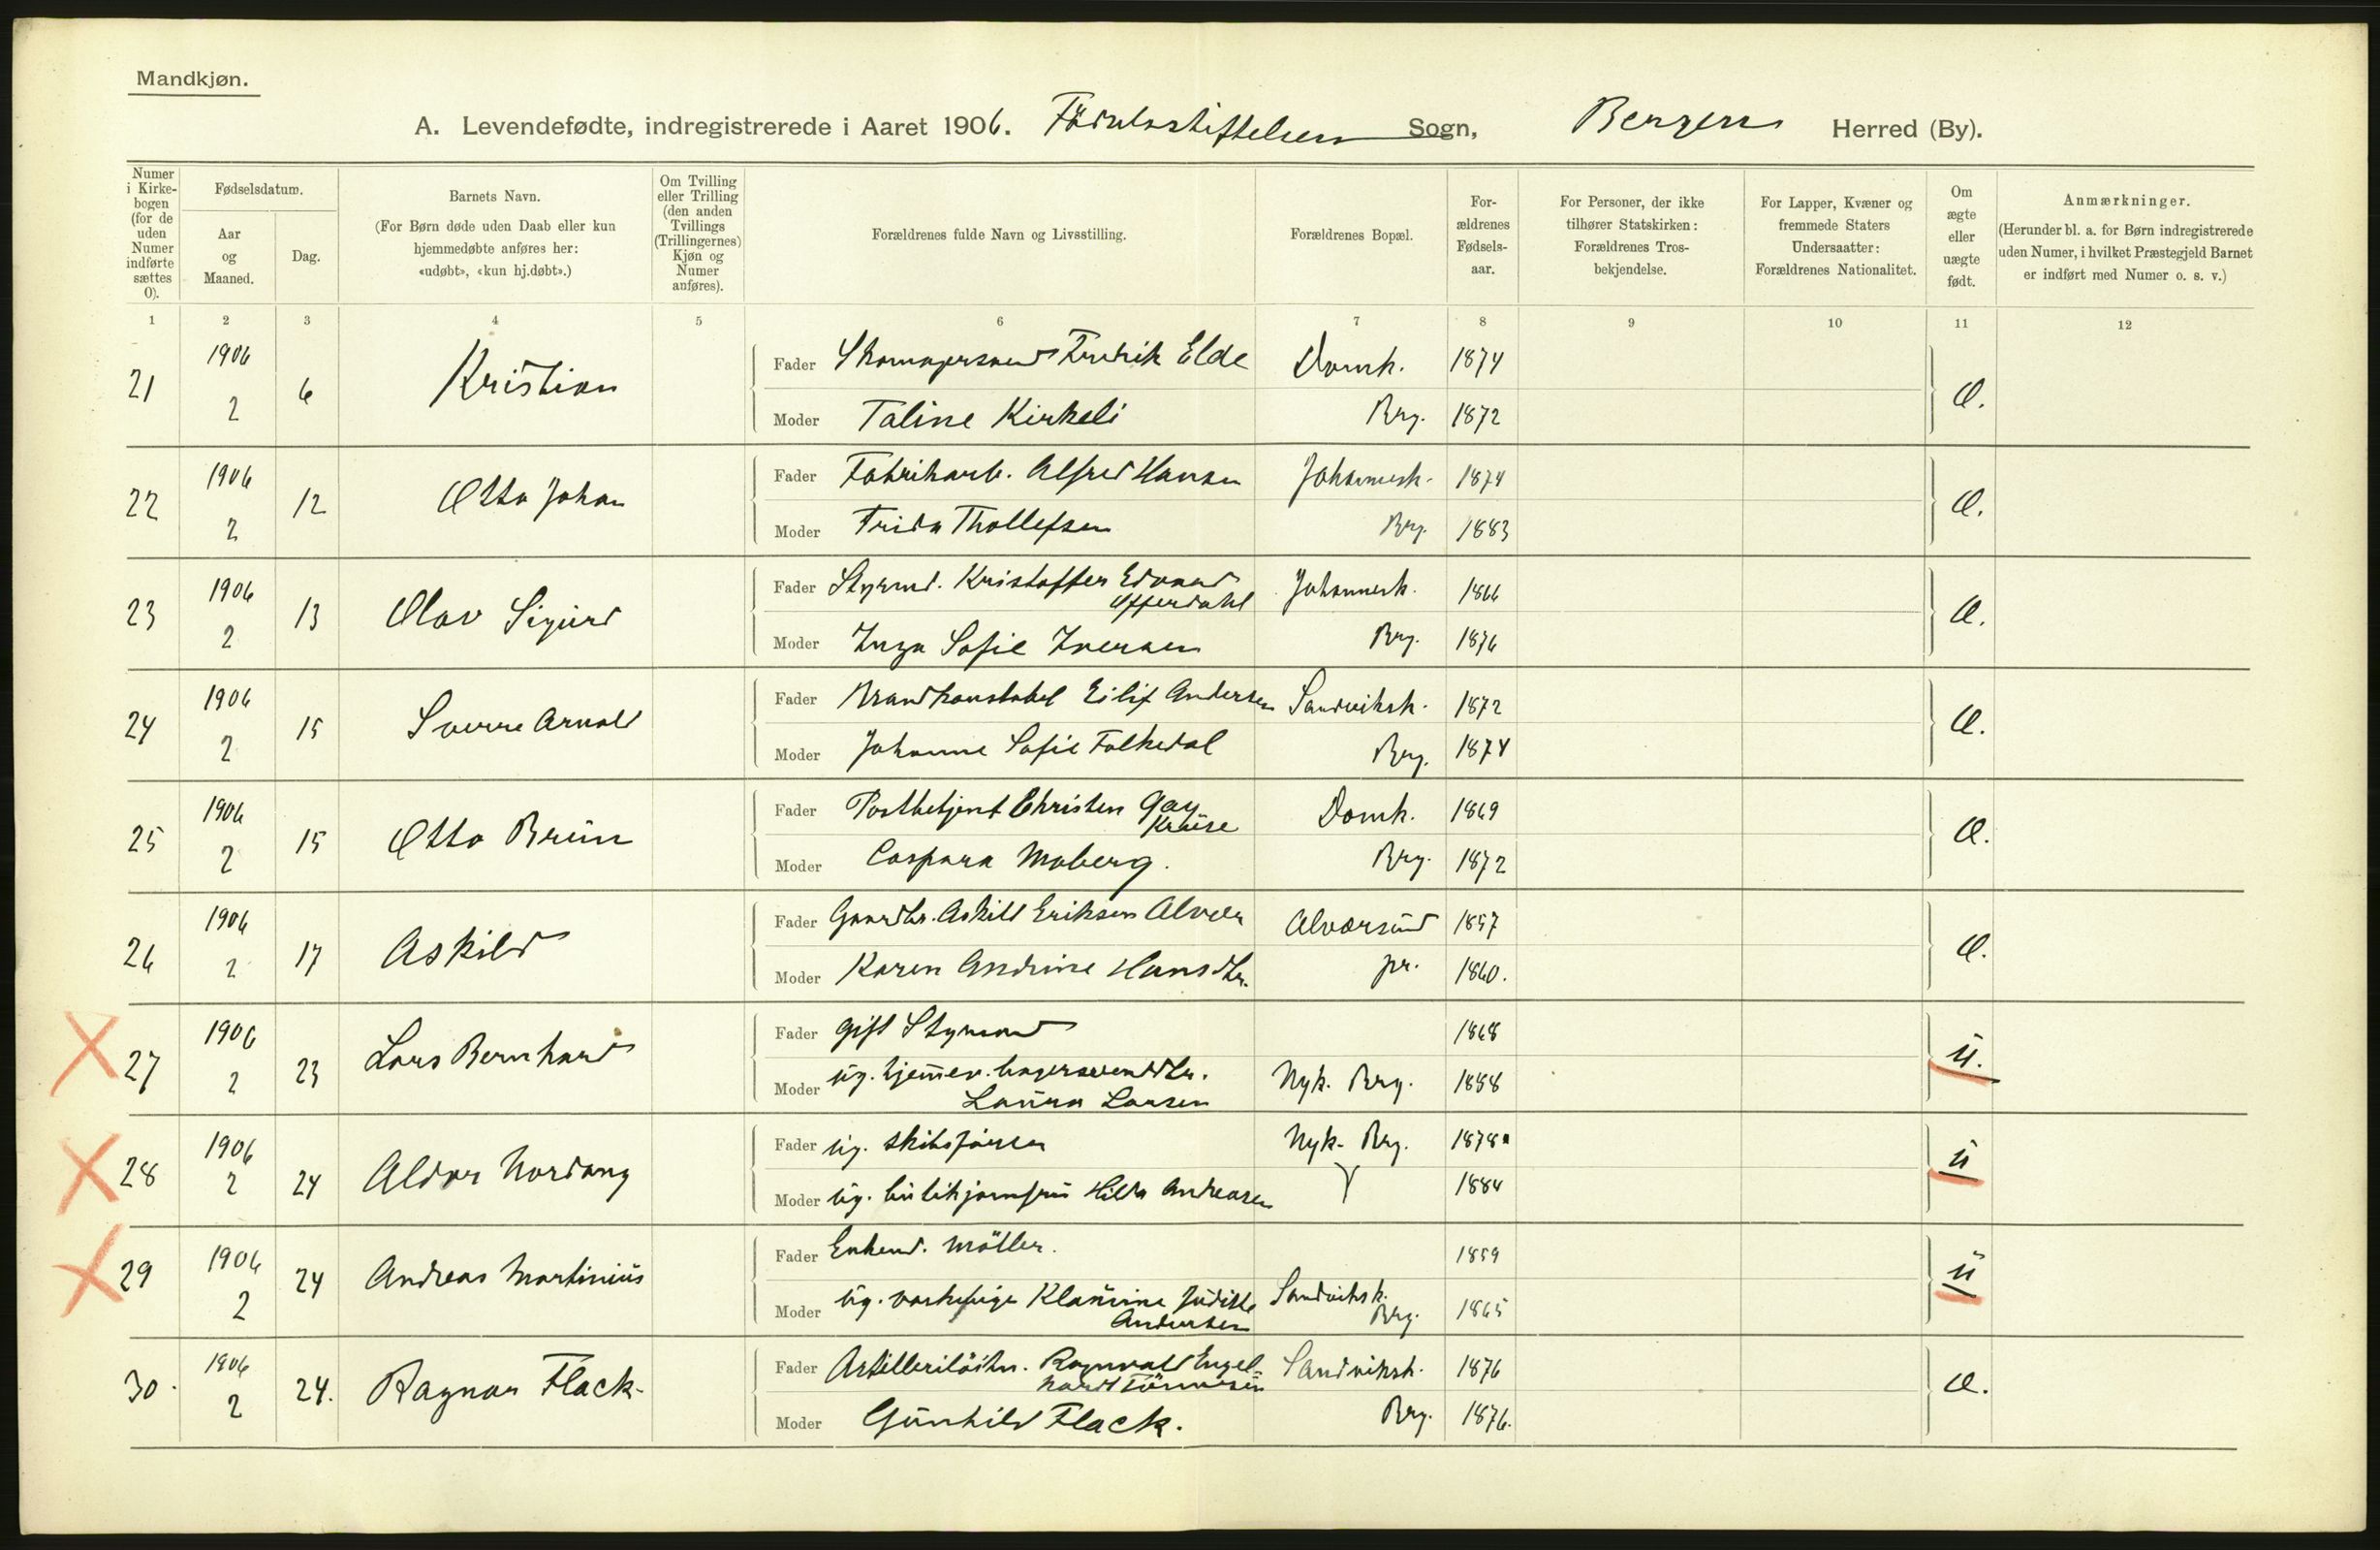 Mandkjøn.
A. Levendefødte, indregistrerede i Aaret 1906. Födselsstiftelsen Sogn, Bergens Herred (By).
Numer i Kirkebogen (for de uden Numer indførte sættes 0).
Fødselsdatum.
Aar og Maaned.
Dag.
Barnets Navn.
(For Børn døde uden Daab eller kun hjemmedøbte anføres her: «udøbt», «kun hj.døbt».)
Om Tvilling eller Trilling (den anden Tvillings (Trillingernes) Kjøn og Numer anføres).
Forældrenes fulde Navn og Livsstilling.
Forældrenes Bopæl.
For-ældrenes Fødsels-aar.
For Personer, der ikke tilhører Statskirken: Forældrenes Tros-bekjendelse.
For Lapper, Kvæner og fremmede Staters Undersaatter: Forældrenes Nationalitet.
Om ægte eller uægte født.
Anmærkninger.
(Herunder bl. a. for Børn indregistrerede uden Numer, i hvilket Præstegjeld Barnet er indført med Numer o. s. v.)
1 2 3 4 5 6 7 8 9 10 11 12
21 1906 2 6 Kristian Fader Skomagersvend Fredrik Elde Domk. 1874 Æ.
Moder Taline Kirkeli Brg. 1872
22 1906 2 12 Otto Johan Fader Fabrikarb. Alfred Hansen Johannesk. 1874 Æ.
Moder Frida Thollefsen Brg. 1883
23 1906 2 13 Olav Sigurd Fader Styrmd. Kristoffer Edvard Offerdahl Johannesk. 1866 Æ.
Moder Inga Sofie Iversen Brg. 1876
24 1906 2 15 Sverre Arnold Fader Brandkonstabel Eilif Andersen Sandviksk. 1872 Æ.
Moder Johanne Sofie Folkedal Brg. 1874
25 1906 2 15 Otto Brun Fader Postbetjent Christen Gay Kruse Domk. 1869 Æ.
Moder Caspara Moberg. Brg. 1872
26 1906 2 17 Askild Fader Gaardbr. Askild Eriksen Alver Alversund 1857 Æ.
Moder Karen Andrine Hansdtr. pr. 1860.
27 1906 2 23 Lars Bernhard Fader gift Styrmand 1868 ü.
Moder üg. hjemmev. bagersvenddtr. Laura Larsen Nyk. Brg. 1888
28 1906 2 24 Aldor Nordang Fader üg. skibsförer Nyk. Brg. 1878 ü
Moder üg. butikjomfru Hilda Andreasen 1884
29 1906 2 24 Andreas Martinius Fader Enkemd. Möller. 1859 ü
Moder üg. vaskepige Klaurine Judithe Andersen Sandviksk. Brg. 1865
30. 1906 2 24. Ragnar Flack. Fader Artilleriløitn. Ragnvald Engelhardt Tönnesen Sandviksk. 1876 Æ.
Moder Gunhild Flack. Brg. 1876.